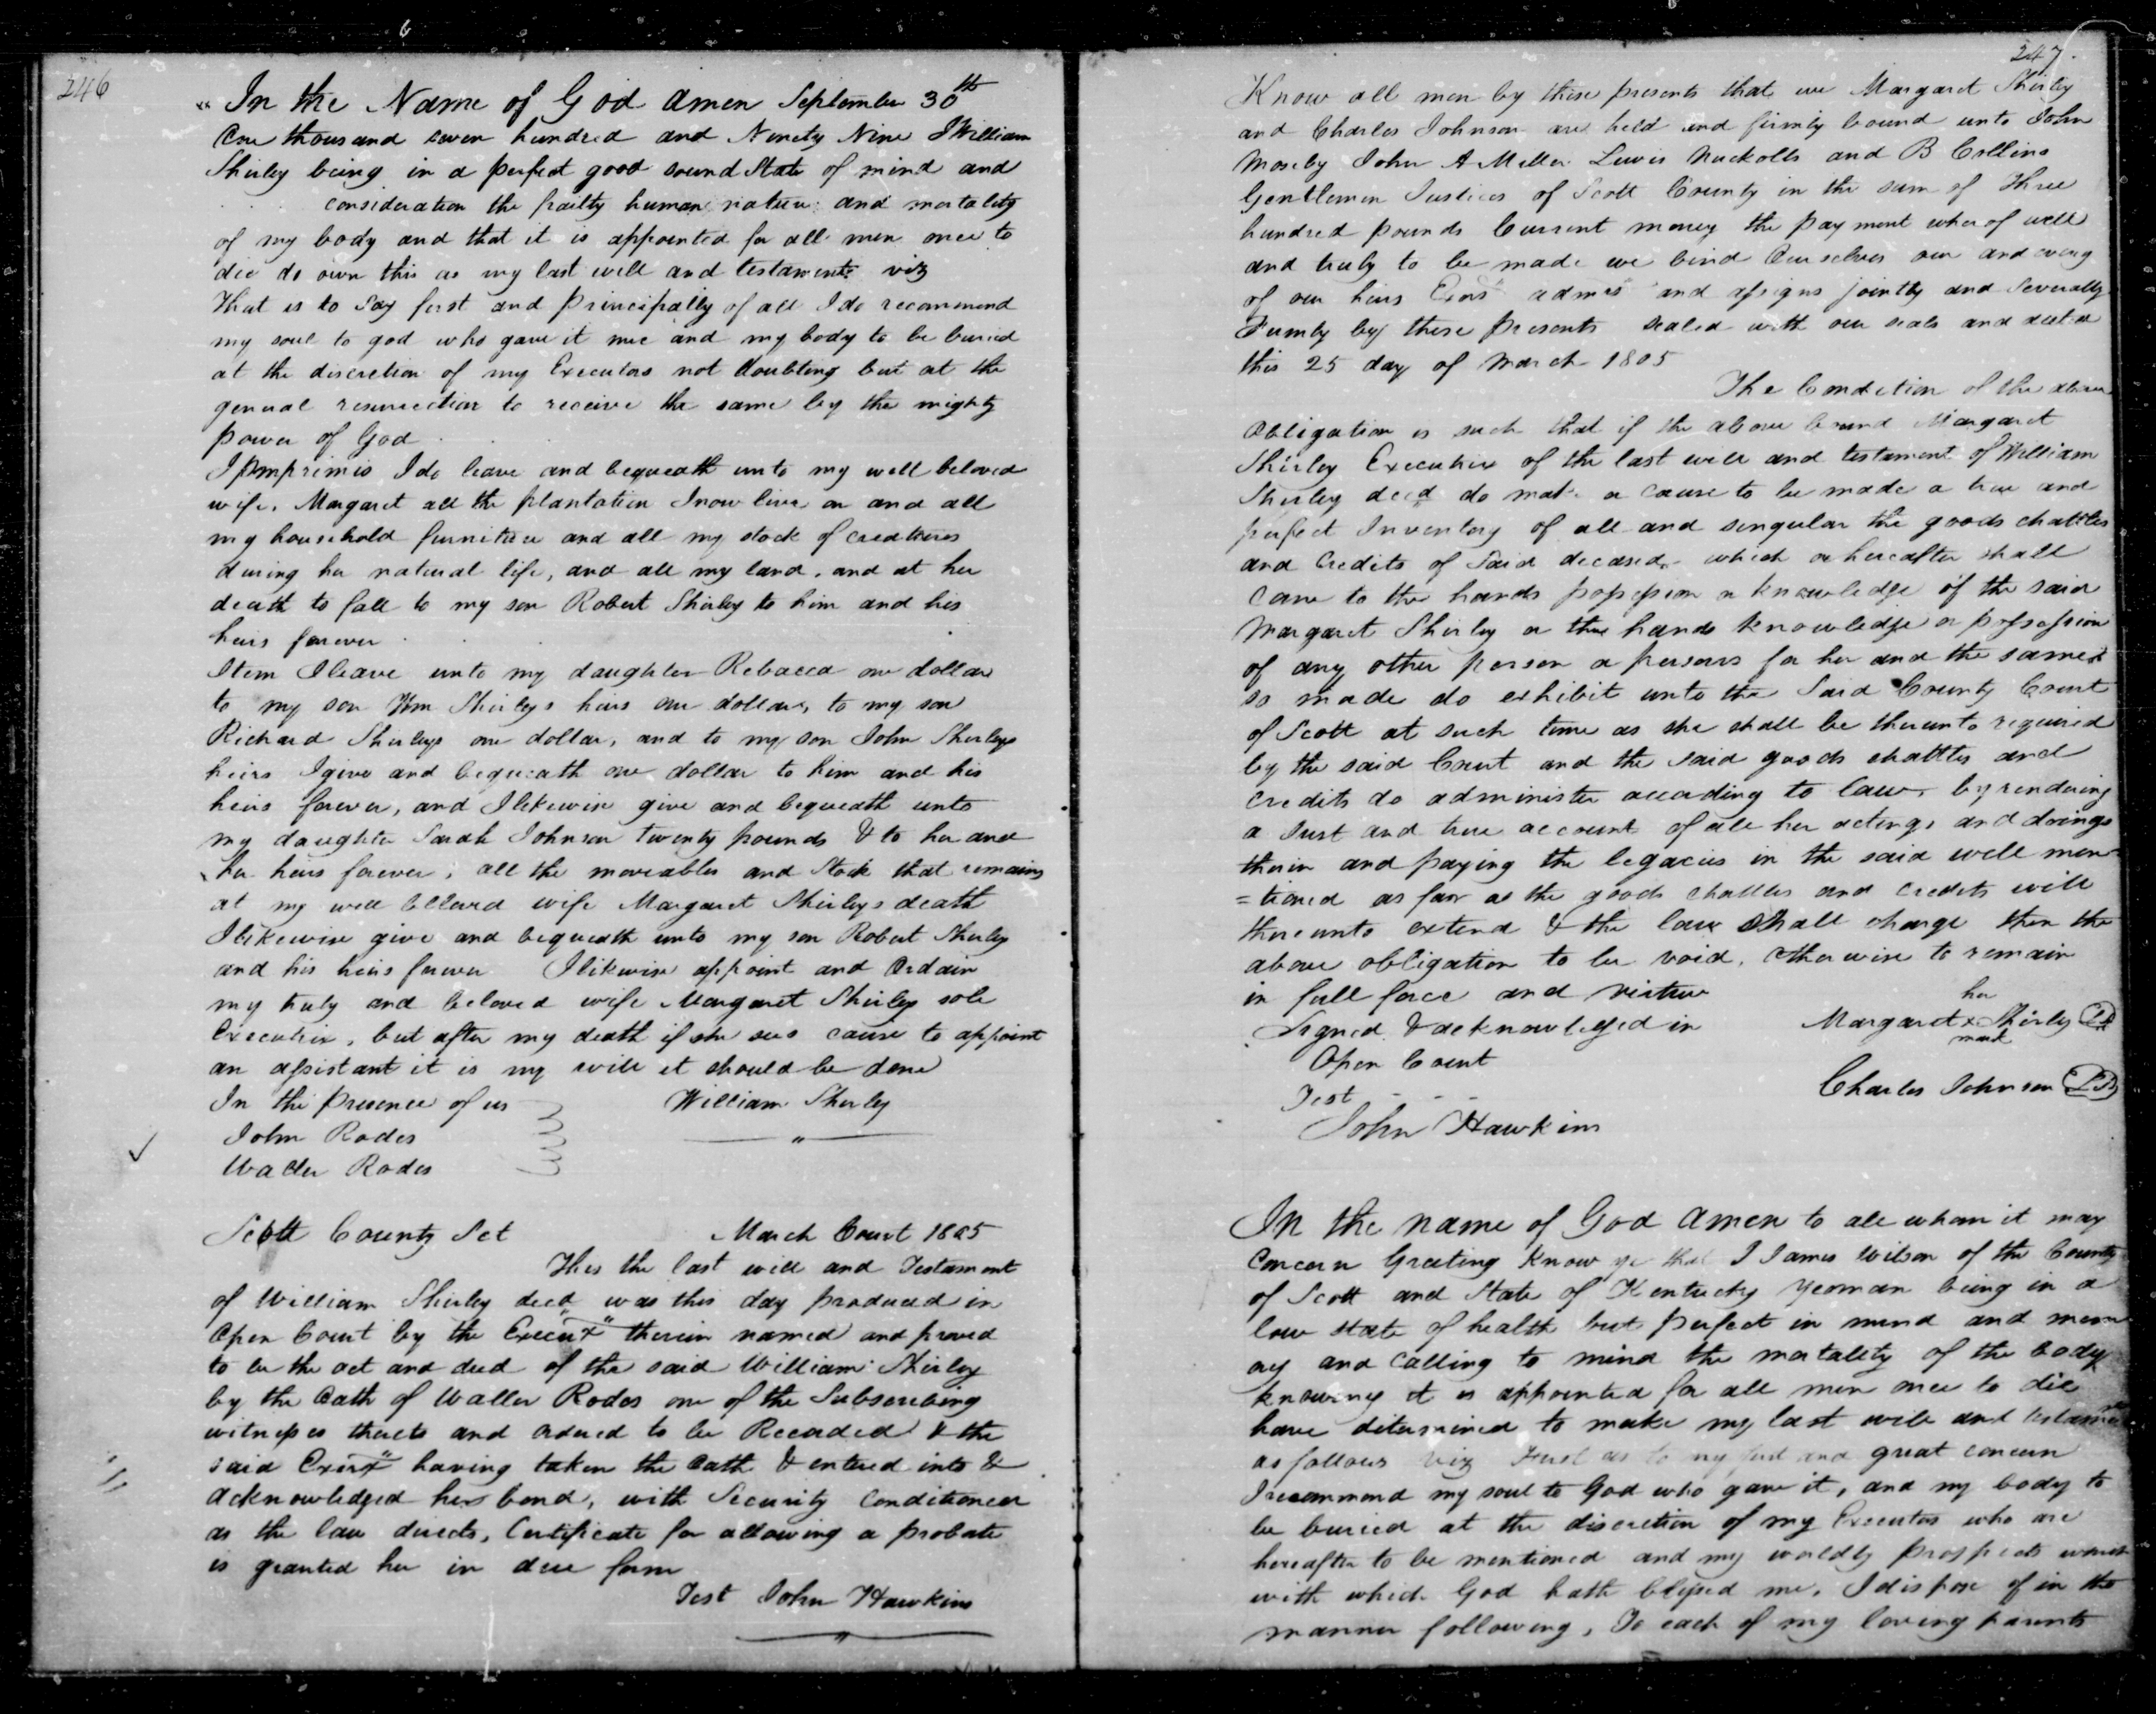 246
In the Name of God Amen September 30th
One thousand seven hundred and Ninety Nine I William
Shirley being in a perfect good sound State of mind and
consideration the frailty human nature and mortality
of my body and that it is appointed for all men once to
die do own this as my last will and testament viz
That is to Say first and Principally of all I do recommend
my soul to god who gave it me and my body to be buried
at the discretion of my Executors not doubting but at the
general resurrection to receive the same by the mighty
power of God
Imprimis I do leave and bequeath unto my well beloved
wife, Margaret all the plantation I now live on and all
my household furniture and all my stock of creatures
during her natural life, and all my land, and at her
death to fall to my son Robert Shirley to him and his
heirs forever
Item I leave unto my daughter Rebacca one dollar
to my son Wm Shirleys heirs one dollar, to my son
Richard Shirleys one dollar, and to my son John Shirleys
heirs I give and bequeath one dollar to him and his
heirs forever, and I likewise give and bequeath unto
my daughter Sarah Johnson twenty pounds & to her and
her heirs forever, all the moveables and Stock that remains
at my well beloved wife Margaret Shirleys death
I likewise give and bequeath unto my son Robert Shirley
and his heirs forever I likewise appoint and Ordain
my truly and beloved wife Margaret Shirley sole
Executrix, but after my death if she sees cause to appoint
an assistant it is my will it should be done
In the presence of us William Shirley
John Rodes
Waller Rodes
Scott County Sct March Court 1805
This the last will and Testament
of William Shirley decd was this day produced in
Open Court by the Execux therein named and proved
to be the act and deed of the said William Shirley
by the Oath of Waller Rodes one of the Subscribing
witnesses thereto and ordered to be Recorded & the
said Exerx having taken the Oath & entered into &
acknowledged her bond, with Security Conditioned
as the law directs, Certificate for allowing a probate
is granted her in due form
Test John Hawkins
247.
Know all men by these presents that we Margaret Shirley
and Charles Johnson are held and firmly bound unto John
Moseby John A Miller Lewis Nuckolls and B Collins
Gentlemen Justices of Scott County in the sum of Three
hundred pounds Current money the payment wherof well
and truly to be made we bind Ourselves our and every
of our heirs Exors admrs and assigns jointly and Severally
Firmly by these presents sealed with our seals and dated
this 25 day of March 1805
The Condition of the above
Obligation is such that if the above bound Margaret
Shirley Executrix of the last will and testament of William
Shirley decd do make or cause to be made a true and
perfect Inventory of all and singular the goods chattles
and Credits of Said deceased, which or hereafter shall
come to the hands possession or knowledge of the said
Margaret Shirley or the hands knowledge or possession
of any other person or persons for her and the same
so made do exhibit unto the Said County Court
of Scott at such time as she shall be thereunto required
by the said Court and the said goods chattles and
credits do administer according to law, by rendering
a Just and true account of all her actings and doings
therin and paying the legacies in the said will men
=tioned as far as the goods chattles and credits will
thereunto extend & the law shall charge then the
above obligation to be void, otherwise to remain
in full force and virtue
Signed & acknowledged in her
Open Court Margaret x Shirley LS
mark
Test Charles Johnson LS
John Hawkins
In the name of God Amen to all whom it may
Concern Greeting Know ye that I James Wilson of the County
of Scott and State of Kentucky Yeoman being in a
low state of health but perfect in mind and mem
ory and calling to mind the mortality of the body
knowing it is appointed for all men once to die
have ditermined to make my last will and testament
as follows Viz First as to my first and great concern
I recommend my soul to God who gave it, and my body to
be buried at the discretion of my Executors who are
hereafter to be mentioned and my worldly prospects
with which God hath blessed me, I dispose of in the
manner following, To each of my loving parents